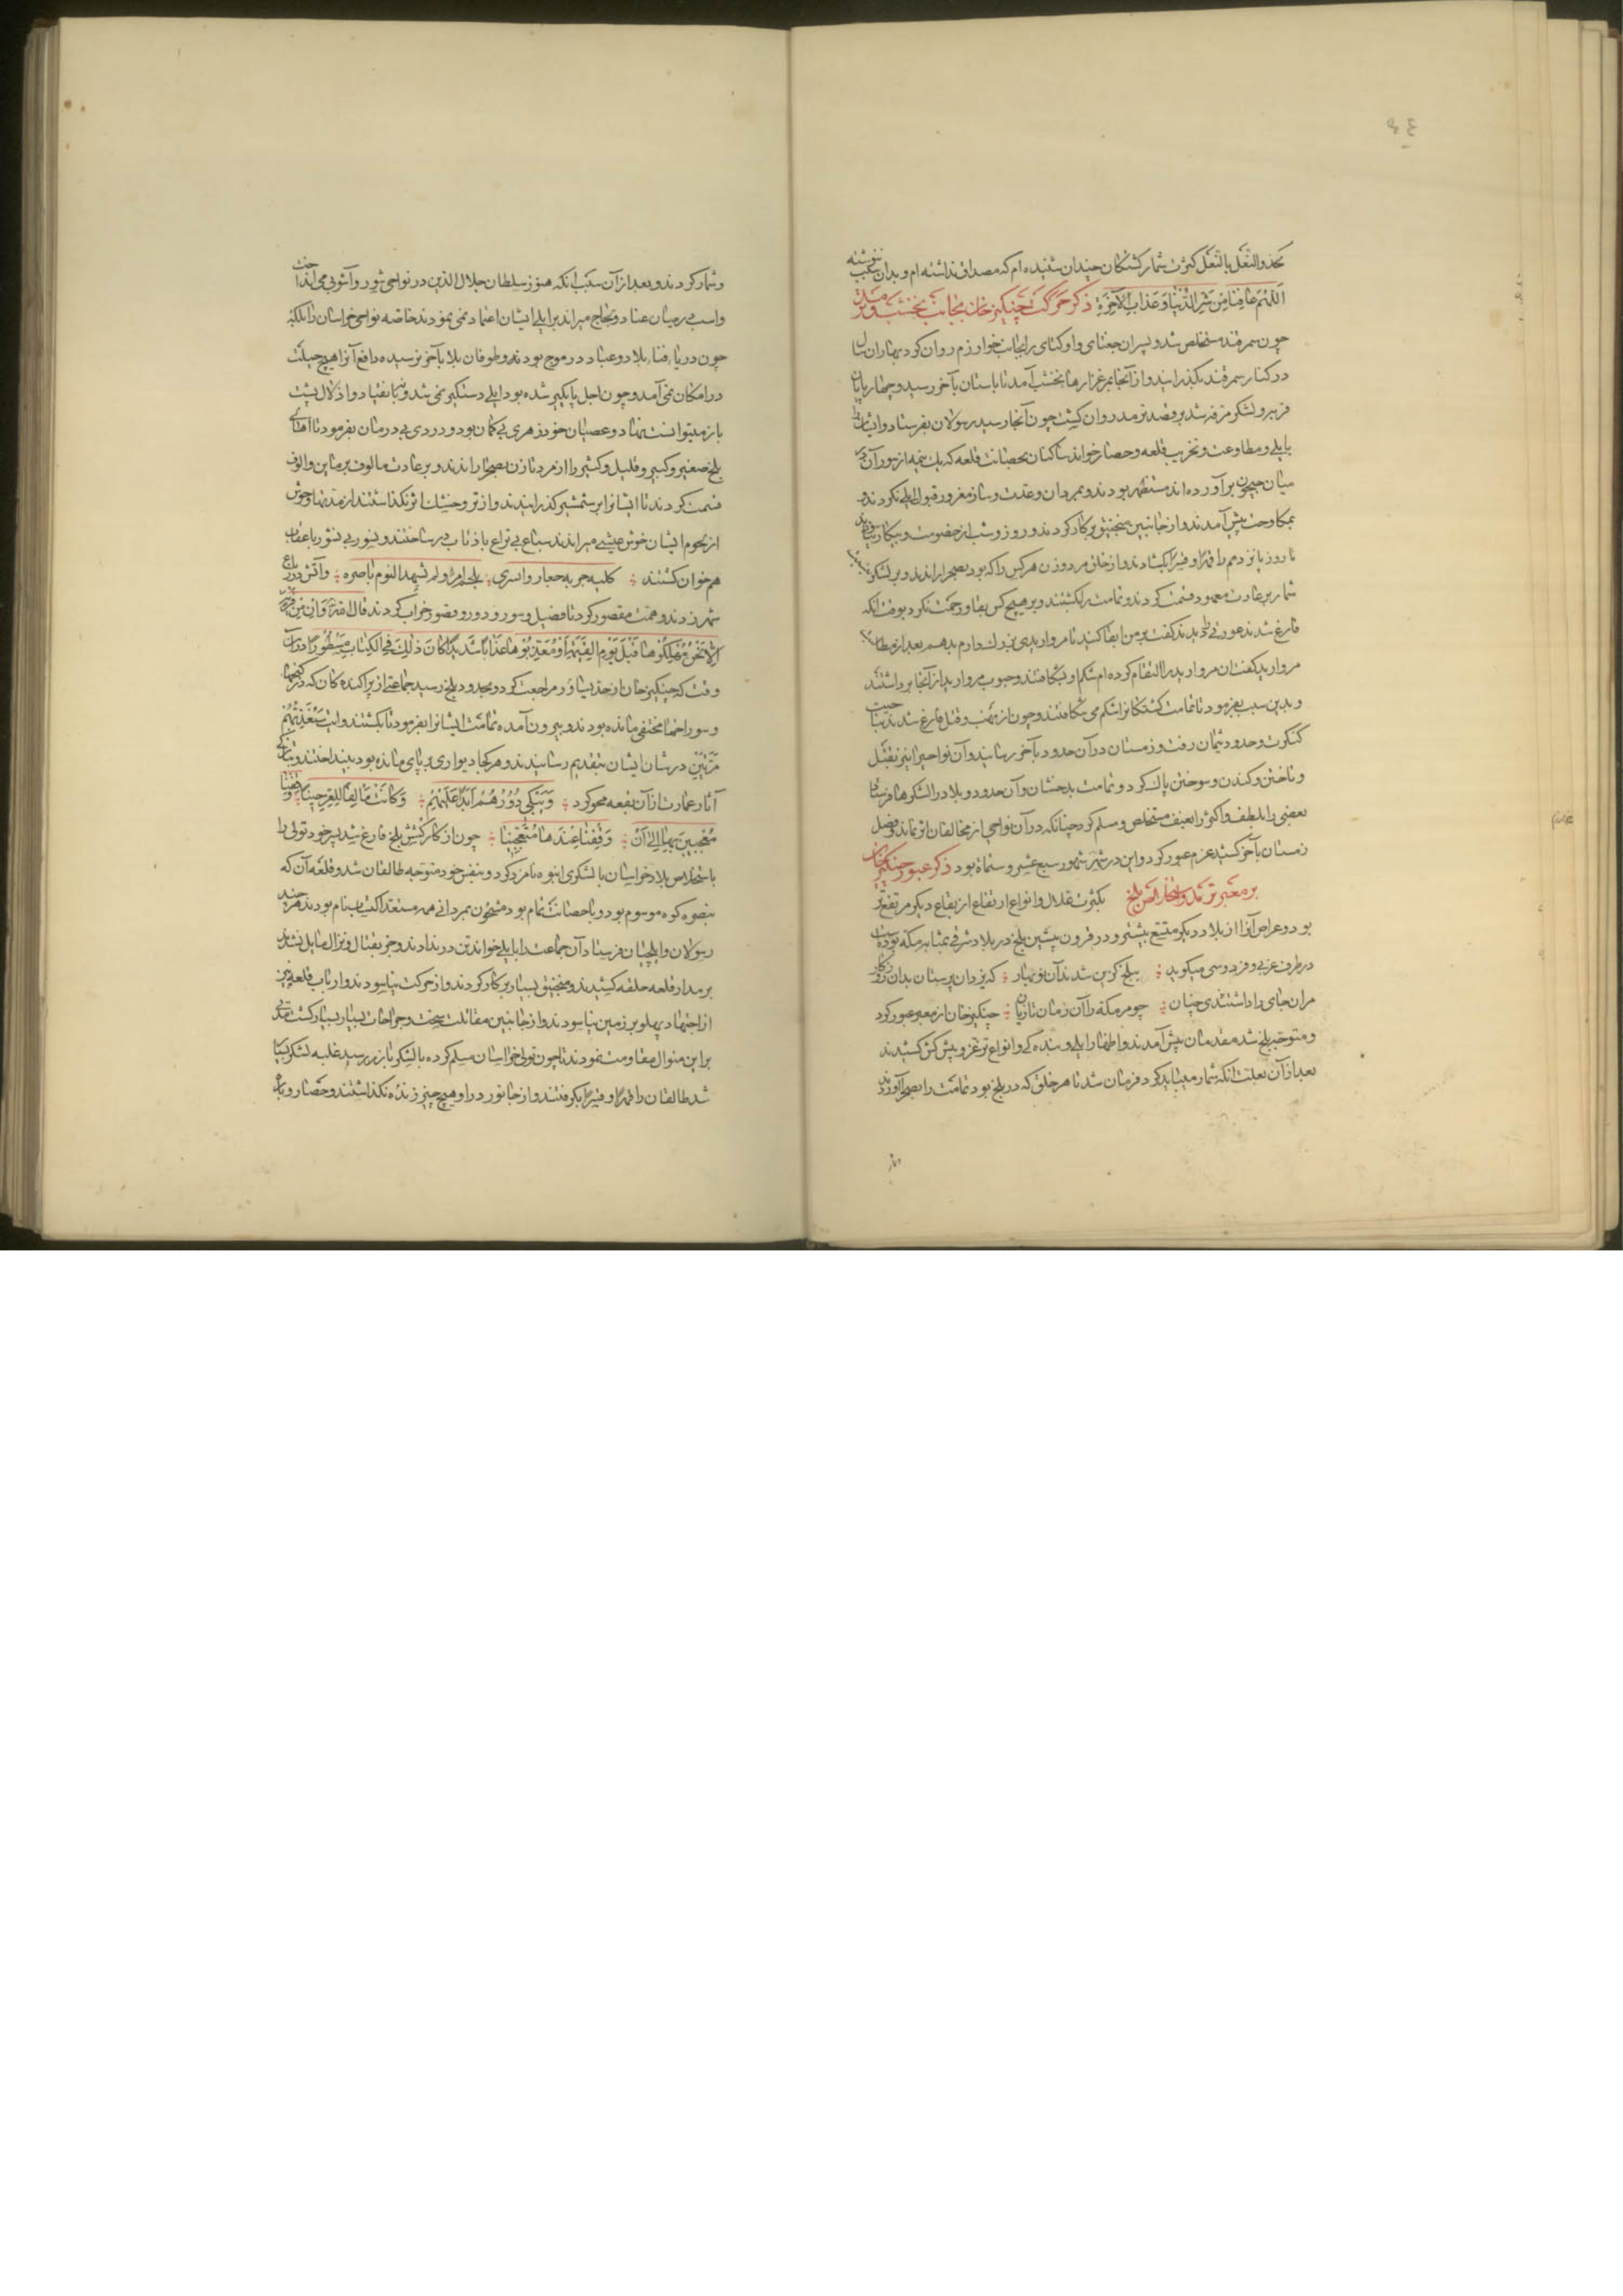 حذو النعل بالنعل کثرت شمار کشتکان چندان شنیده‌ام که مصداق نداشته‌ام و بدان سبب ننوشته
اَللّهُمَّ عافِنا مِن شَرِّ الدُّنیا وَعَذابِ الآخِرَةِ ذکر حرکت چنکیز خان بجانب نخشب و ترمد
چون سمرقند مستخلص شد و پسران جغتای و اوکتای را بجانب خوارزم روان کرد بهاران سال
در کنار سمرقند بکذرانید و از آنجا بمرغزارها نخشب آمد تا تابستان بآخر رسید و چهارپایان
فربه و لشکر مرفه شد بر قصد ترمد روان کشت چون آنجا رسید رسولان بفرستاد و ایشان را
بایلی و مطاوعت و تخریب قلعه و حصار خواند ساکنان بحصانت قلعه که یک نیمه از سور آن در
میان جیحون برآورده‌اند مستظهر بودند و بمردان و عدت و ساز مغرور قبول ایلی نکردند و
بمکاوحت پیش آمدند و از جانبین منجنیق بر کار کردند و روز و شب از خصومت و پیکار نیاسودند
تا روز یازدهم را قهرًا و قسرًا بکشادند و از خلق مرد و زن هر کس را که بود بصحرا راندند و بر لشکر
شمار بر عادت معهود قسمت کردند و تمامت را بکشتند و بر هیچ کس ابقا و رحمت نکرد بوقت آنکه
فارغ شدند عورتی را بدیدند کفت بر من ابقا کنید تا مرواریدی بزرک دارم بدهم بعد از مطالبه
مروارید کفت آن مروارید را التقام کرده‌ام شکم او بشکافتند و حبوب مروارید از آنجا برداشتند
و بدین سبب بفرمود تا تمامت کشتکانرا شکم می‌شکافتند و چون از نهب و قتل فارغ شدند بناحیت
کنکرت و حدود شمان رفت و زمستان در آن حدود بآخر رسانید و آن نواحی را نیز بقتل
و تاختن و کندن و سوختن پاک کرد و تمامت بدخشان و آن حدود و بلاد را لشکرها فرستاد
بعضی را بلطف و اکثر را بعنف مستخلص و مسلم کرد چنانکه در آن نواحی از مخالفان اثر نماند و فصل
زمستان بآخر کشید عزم عبور کرد و این در شهور سبع عشر و ستمایة بود ذکر عبور چنکیز خان
بر معبر ترمد و استخلاص بلخ بکثرت غلال و انواع ارتفاع از بقاع دیکر مرتفع‌تر
بود و عراص آنرا از بلاد دیکر متسع بیشتر و در قرون پیشین بلخ در بلاد شرقی بمثابت مکه بودست
در طرف غربی و فردوسی میکوید ؛ ببلخ کزین شد بدان نوبهار ؛ که یزدان پرستان بدان روزکار
مر آن جای را داشتندی چنان ؛ چو مر مکه را آن زمان تازیان ؛ چنکیز خان از معبر عبور کرد
و متوجه بلخ شد مقدمان پیش آمدند و اظهار ایلی و بندکی و انواع ترغو و پیش کش کشیدند
بعد از آن بعلت آنکه شمار میباید کرد فرمان شد تا هر خلق که در بلخ بود تمامت را بصحرا آوردند
و شمار کردند و بعد از آن سبب آنکه هنوز سلطان جلال الدین در نواحی شور و آشوبی می‌انداخت
و اسب در میدان عناد و لجاج میراند بر ایلی ایشان اعتماد نمی نمودند خاصه نواحی خراسان را بلکه
چون دریاء فناء بلاد و عباد در موج بود و طوفان بلا بآخر نرسیده دافع آنرا هیچ حیلت
در امکان نمی‌آمد و چون اجل پایکیر شده بود ایلی دستکیر نمی‌شد و بانقیاد و اذلال پشت
باز نمیتوانست نهاد و عصیان خود زهری بی‌کمان بود و دردی بی‌درمان بفرمود تا
بلخ صغیر و کبیر و قلیل و کثیر را از مرد تا زن بصحرا راندند و بر عادت مالوف بر ماین و الوف
قسمت کردند تا ایشانرا بر شمشیر کذرانیدند و از تر و خشک اثر نکذاشتند از مدتها وحوش
از لحوم ایشان خوش عیشی میراندند سباع بی‌نزاع با ذئاب در ساختند و نسور بی‌نشور با عقاب
هم‌خوان کشتند ؛ کلیه جریه جعار وابشری ؛ بلحم امرءٍ لم یشهد الیوم ناصره ؛ و آتش در باغ
شهر زدند و همت مقصور کردند تا فصیل و سور و دور و قصور خراب کردند قال الله تعالی وَاِن مِن قَریَةٍ
اِلّا نَحنُ مُهلِکُوها قَبلَ یَومِ القِیمَةِ اَو مُعَذِّبُوها عَذابًا شَدیدًا کانَ ذلِکَ فِی الکِتابِ مَسطُورًا و در آن
وقت که چنکیز خان از حد پیشاور مراجعت کرد و بحدود بلخ رسید جماعتی از پراکندکان که در کنجها
و سوراخها مختفی مانده بودند و بیرون آمده تمامت ایشانرا بفرمود تا بکشتند و آیت سَنُعَذِّبُهُم
مَرَّتَینِ در شان ایشان بتقدیم رسانیدند و هر کجا دیواری بر پای مانده بود بینداختند و بتازکی
آثار عمارت از آن بقعه محو کرد ؛ وَتَبکی دُورُهُم اَبَدًا عَلَیهِم ؛ وَکانَت مَألِفًا لِلعِزِّ حینًا ؛ وَقَفنا
مُعجَبینَ بِها اِلی اَن ؛ وَقَفنا عِندَها مُتَعَجِّبینا ؛ چون از کار کشش بلخ فارغ شد پسر خود تولی را
باستخلاص بلاد خراسان با لشکری انبوه نامزد کرد و بنفس خود متوجه طالقان شد و قلعه آن که
بنصره کوه موسوم بود و با حصانت تمام بود مشحون بمردانی همه مستعد اکتساب نام بودند هر چند
رسولان و ایلچیان فرستاد آن جماعت را بایلی خواند تن در ندادند و جز بقتال و نزال مایل نشدند
بر مدار قلعه حلقه کشیدند و منجنیق بسیار بر کار کردند و از حرکت نیاسودند و ارباب قلعه نیز
از اجتهاد پهلو بر زمین نیاسودند و از جانبین مقاتلت سخت و جراحات بسیار بسیار کشت مدتی
بر این منوال مقاومت نمودند تا چون تولی خراسان مسلم کرده با لشکر باز رسید غلبه لشکر بسیار
شد طالقان را قهرًا و قسرًا بکرفتند و از جانور در او هیچ چیز زنده نکذاشتند و حصار و باره